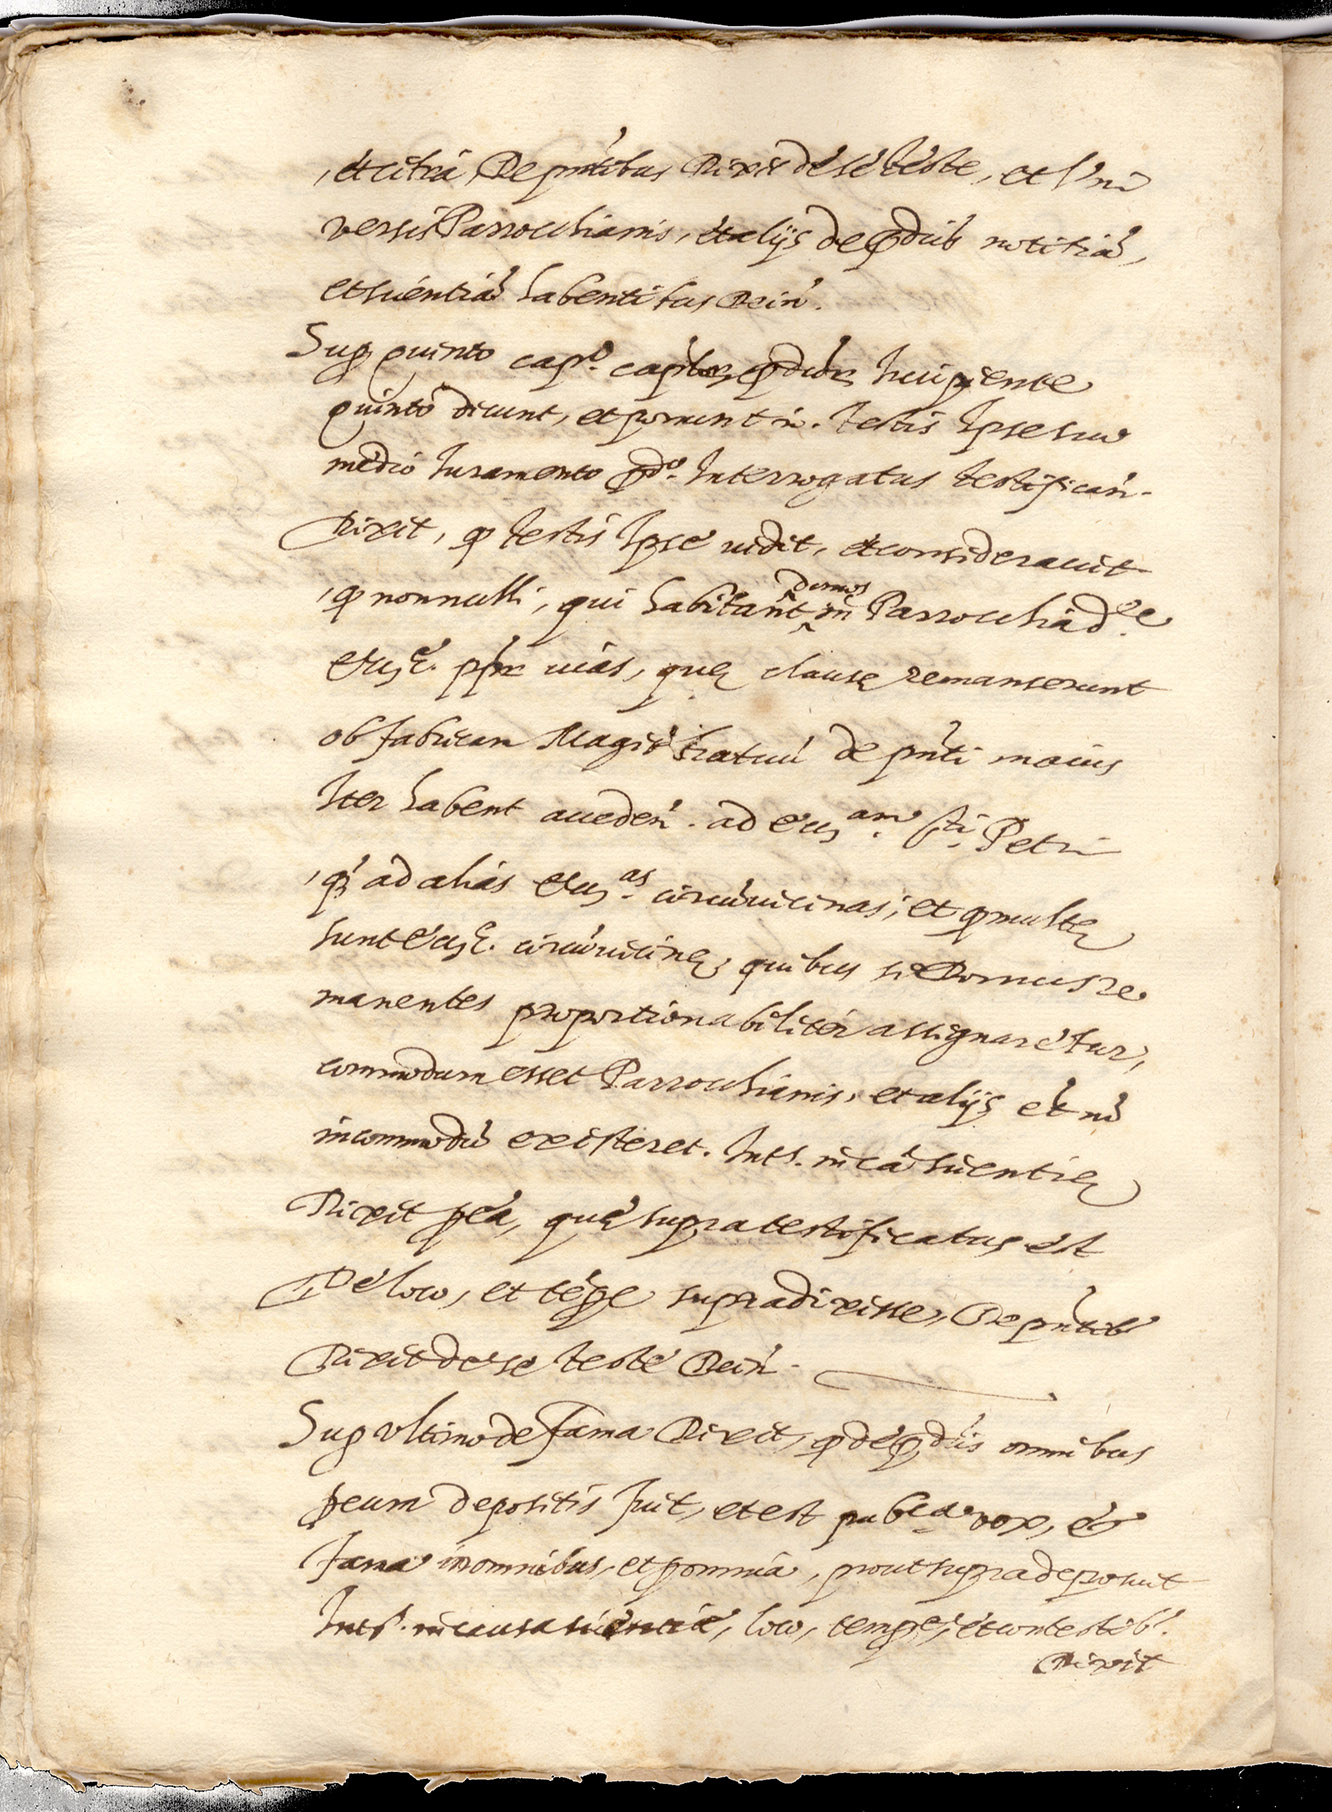 , et citra, De pntibus Dixit de se teste, et Vni
versis Parrochianis, et alijs de pdictis notitiã,
et scientiã habentibus Dein.
Sup quinto capº. capitlor, pdictor, Incipiente
quinto dicunt, et ponunt n. Testis Ipse suo
medio Iuramento pdº. Interrogatus testifican.
Dixit, q testis Ipse vidit, et consideravit
, q nonnulli, qui habitant domos in Parrochia dᵉᵉ
eccę. ppter vias, quę clausę remanserunt
ob fabricam Magistratuũ de pnti maius
Iter habent acceden. ad eccᵃᵐ. Sᵗⁱ. Petri
, q ad alias eccᵃˢ. circũvicinas, et q multę
sunt eccę. circũvicinę, quibus si Domus re
manentes proportionabiliter assignaretur,
commodum esset Parrochianis, et alijs et nõ
incommodũ existeret. Intˢ. in cã scientię
Dixit p ea, quę supra testificatus est
De loco, et tẽpe supra dixisse, De pntibˢ
Dixit de se teste Dein.
Sup vltimo de fama Dixit, q de pdictis omnibus
p eum depositis fuit, et est pubᶜᵃ. vox, et
fama in omnibus, et p omnia, prout supra deposuit
Intˢ. in causa scientie, loco, tempe, et contestibˢ.
Dixit